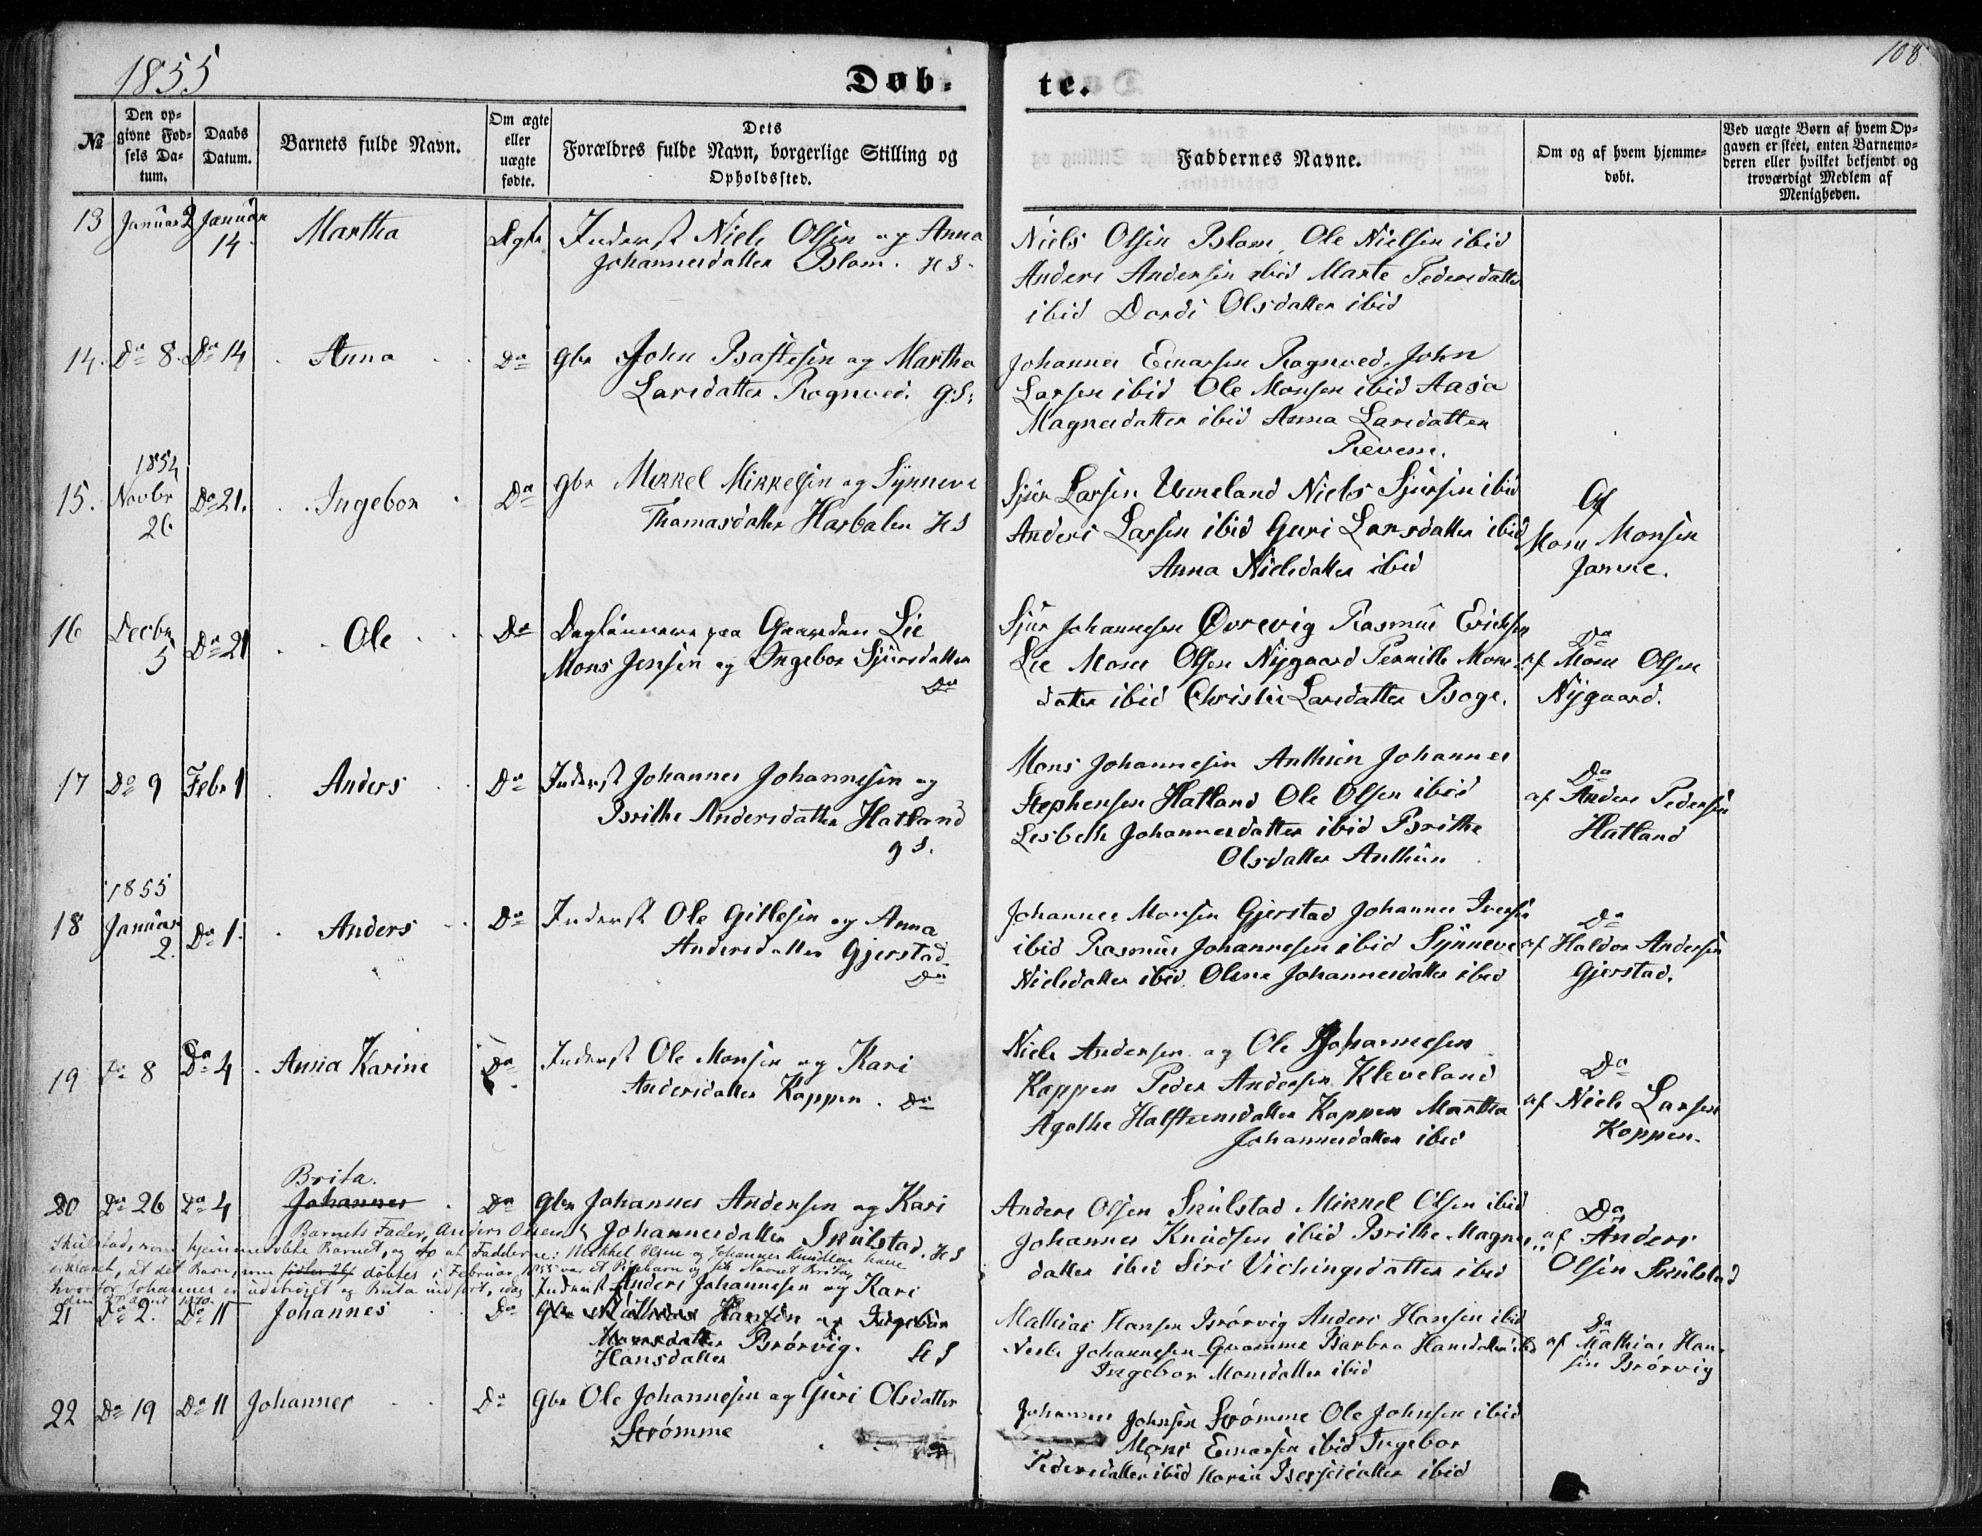 1855
108
Døb- te.
№
Den op-
givne Fød-
sels Da-
tum.
Daabs
Datum.
Barnets fulde Navn.
Om ægte
eller
uægte
fødte.
Dets
Forældres fulde Navn, borgerlige Stilling og
Opholdssted.
Faddernes Navne.
Om og af hvem hjemme-
døbt.
Ved uægte Børn af hvem Op-
gaven er skeet, enten Barnemo-
deren eller hvilket bekjendt og
troværdigt Medlem af
Menigheden.
13 Januar 2 Januar
14
Martha
Ægte
Inderst Niels Olsen og Anna
Johannesdatter H S.
Niels Olsen Ole Nielsen ibid
Anders Andersen ibid Marte Pedersdatter
ibid Dordi Olsdatter ibid
14. Do 8. Do 14 Anna Do
Gbr John og Martha
Larsdatter Rognved. G.S.
Johannes Einarsen Rognved. John
Larsen ibid Ole Monsen ibid Aasa
Magnesdatter ibid Anna Larsdatter
Reveim.
15. 1854
Novbr
26
Do 21. Ingebor Do
Gbr Mikkel Mikkelsen og Synneve
Thomasdatter Hasbalen H S
Sjur Larsen Unneland Niels Sjursen ibid
Anders Larsen ibid Guri Larsdatter ibid
Anna Nielsdatter ibid
Af
Mons Monsen
16 Decbr
5
Do 21 Ole Do
Daglønnere paa Gaarden Lie
Mons Jensen og Ingebor Sjursdatter
Do
Sjur Johannesen Øvrevig Rasmus Ericksen
Lie Mons Olsen Nygaard Pernille Mons-
datter ibid Christie Larsdatter Boge.
Do
af Mons Olsen
Nygaard.
17 Do 9 Febr 1 Anders Do
Inderst Johannes Johannesen og
Brithe Andersdatter Hatland
g S.
Mons Johannesen Anthun Johannes
Stephensen Hatland Ole Olsen ibid
Lisbeth Johannesdatter ibid Brithe
Olsdatter Anthun
Do
af Anders Pedersen
Hatland
18 1855
Januar
2.
Do 1. Anders Do
Inderst Ole Gitlesen og Anna
Andersdatter Gjerstad.
Do
Johannes Monsen Gjerstad Johannes Iversen
ibid Rasmus Johannesen ibid Synneve
Nielsdatter ibid Olena Johannesdatter ibid
Do
af Haldor Andersen
Gjerstad.
19 Do 8 Do 4 Anna Karine Do
Inderst Ole Monsen og Kari
Andersdatter Koppen. Do
Niels Andersen og Ole Johannesen
Koppen Peder Andersen Kleveland
Agathe Halsteensdatter Koppen Martha
Johannesdatter ibid
Do
af Niels Larsen
Koppen.
20 Do 26 Do 4 Brita.
Johannes
Do
Gbr Johannes Andersen og Kari
Johannesdatter Skulstad. H S
Barnets Fader, Anders Olsen
Skulstad, som hjemmedøbte Barnet, og to af Fadderne: Mikkel Olsen og Johannes Knudsen have
erklæret, at det Barn, som døbtes i Februar 1855 var et Pigebarn og fik Navnet Brita,
hvorfor Johannes er udstrøget og Brita indført, idag
Anders Olsen Skulstad Mikkel Olsen ibid
Johannes Knudsen ibid Brithe Magnes-
datter ibid Siri Vichingsdatter ibid
Do
af Anders
Olsen Skulstad
21 Do 2. Do 11 Johannes Do
Inderst Anders Johannesen og Kari
Gbr Mathias Hansen og Ingebor
Monsdatter
Hansdatter Brørvig. H S
Mathias Hansen Brørvig Anders Hansen ibid
Niels Johannesen Qvamme Barbra Hansdatter ibid
Ingebor Monsdatter ibid
Do
af Mathias Han-
sen Brørvig
22 Do 19 Do 11 Johannes Do
Gbr Ole Johannesen og Guri Olsdatter
Strømme
Johannes Johnsen Strømme Ole Johnsen ibid
Mons Einarsen ibid Ingebor
Pedersdatter ibid ibid